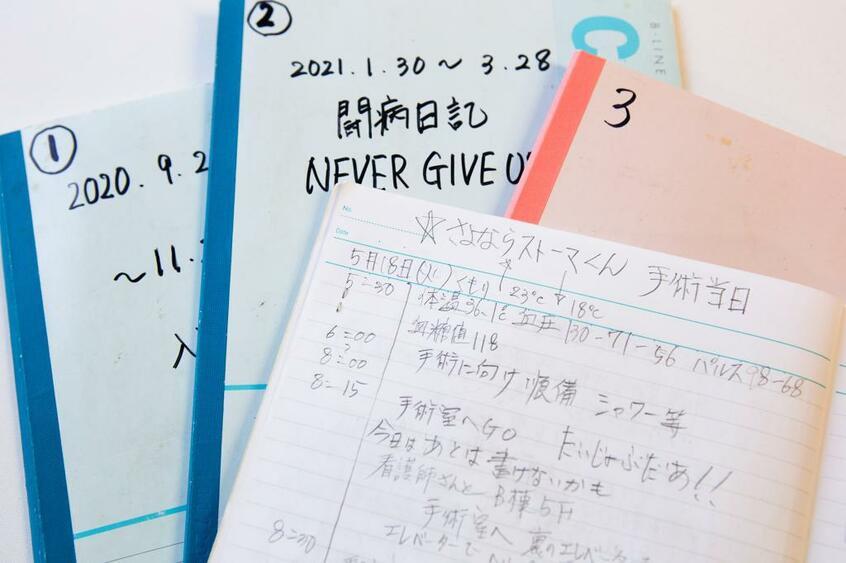 ①
2020.9.2
~11.
入
②
2021.1.30~3.28
闘病日記
NEVER GIVE U
C
B-LINE
3
No.
Date
☆さよならストーマくん 手術当日
5月18日(火)くもり 23℃ 18℃
5:30 体温36.1℃ 血圧130-71-56 パルス98-68
血糖値118
6:00
手術に向け準備 シャワー等
8:00
8:15
手術室へGO だいじょぶだぁ!!
今日はあとは書けないかも
看護師さんと B棟5F
手術室へ 裏のエレベ
8:30 エレベーターで